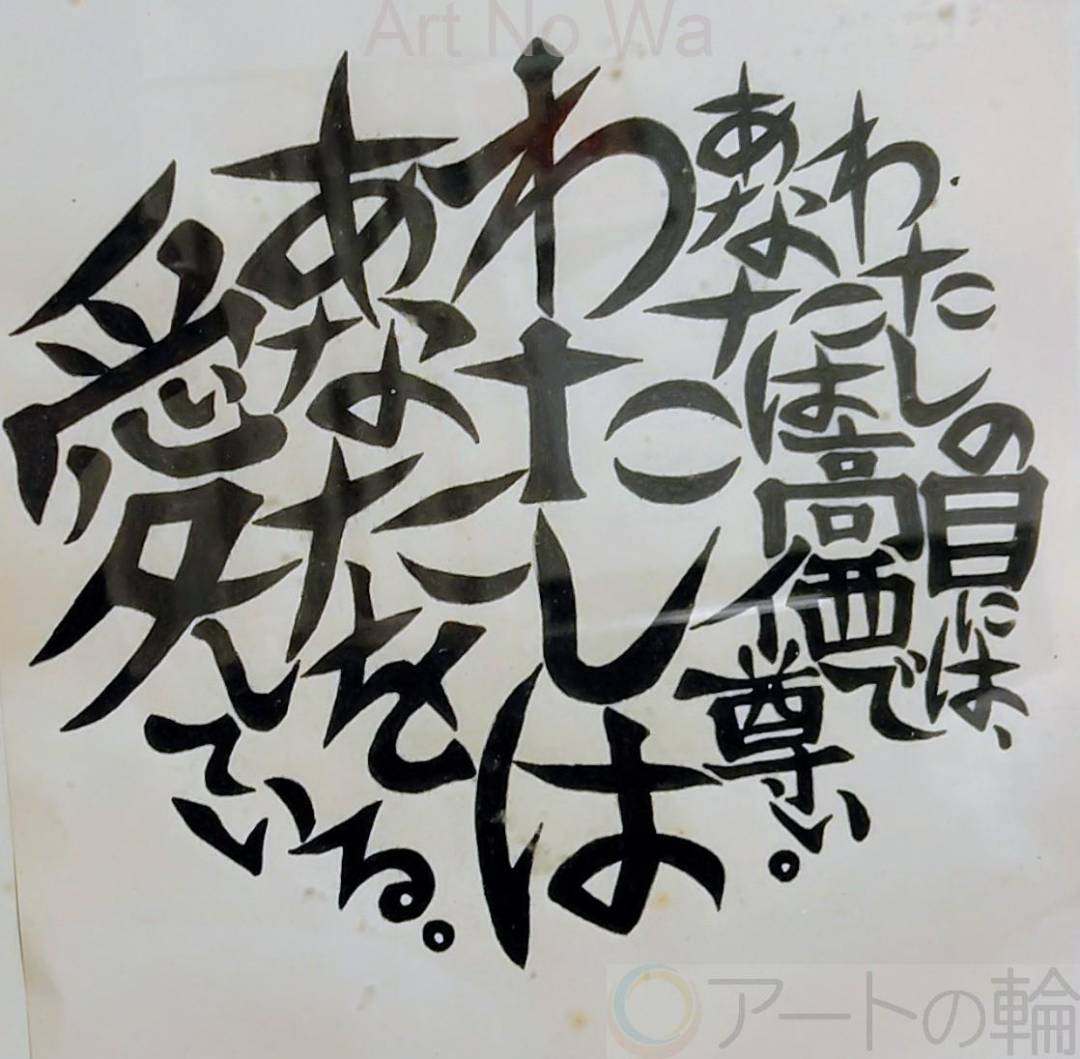 Art No Wa
わたしの目には、
あなたは高価で
尊い。
わたしは
あなたを
愛している。
アートの輪